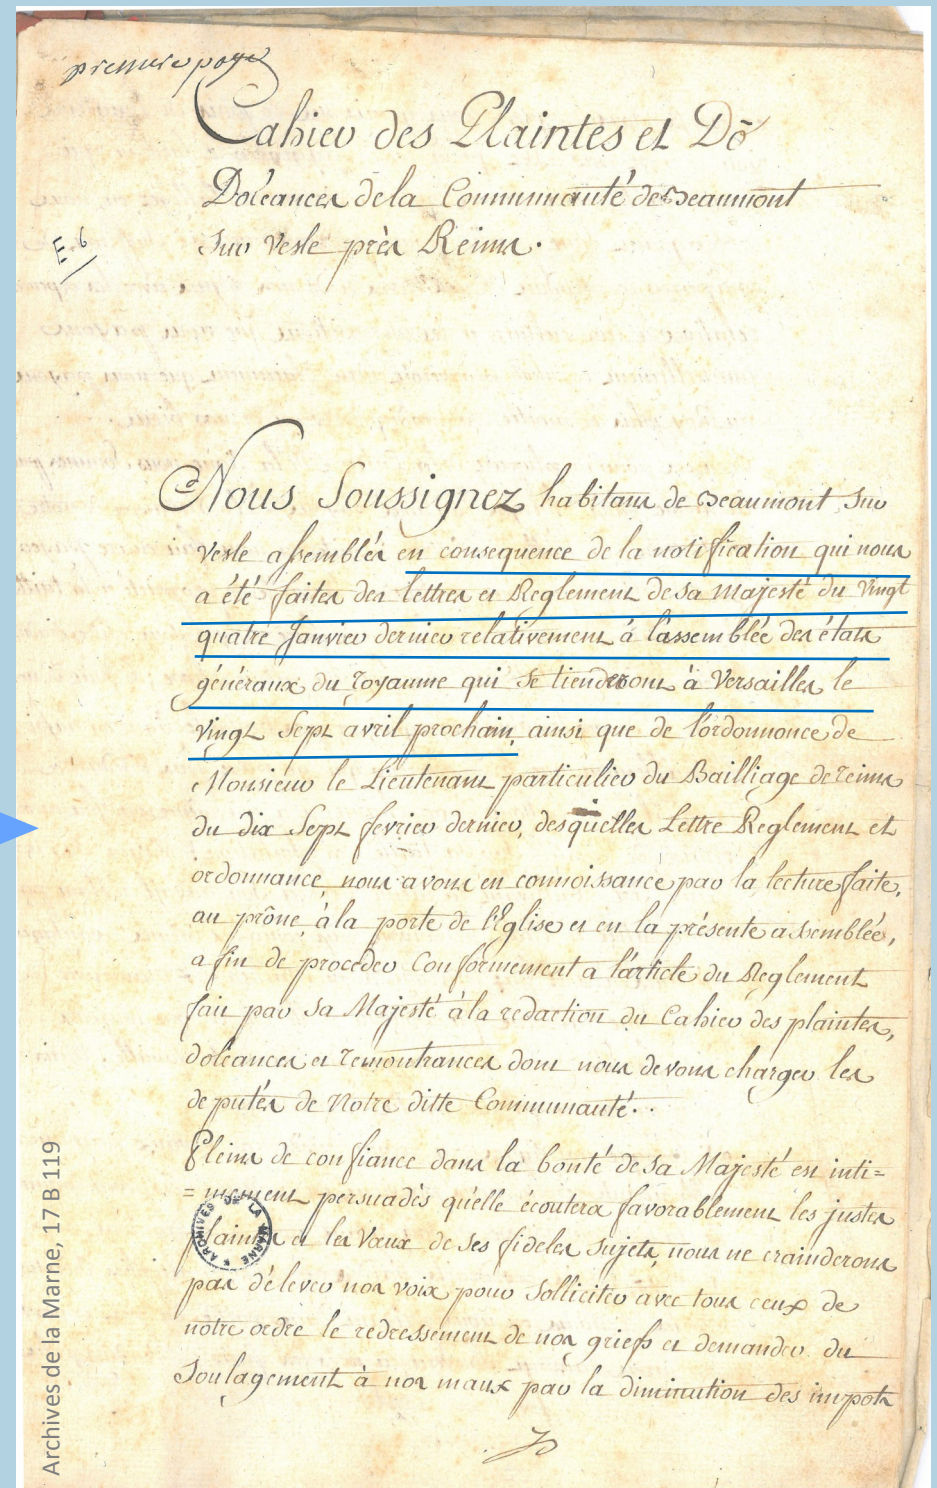 premiere page
Cahier des Plaintes et Dô
Doléances de la Communauté de Beaumont
sur Vesle près Reims.
E. 6
Nous Soussignez habitans de Beaumont sur
Vesle assemblés en consequence de la notification qui nous
a été faites des lettres et Reglement de sa Majesté du Vingt
quatre Janvier dernier relativement à l'assemblée des états
généraux du royaume qui se tienderont à Versailles le
vingt Sept avril prochain, ainsi que de l'ordonnonce de
Monsieur le Lieutenant particulier du Bailliage de reims
du dix Sept fevrier dernier, desquelles Lettre Reglement et
ordonnance, nous avons en connoissance par la lecture faite,
au prône, à la porte de l'Eglise et en la présente assemblée,
afin de proceder Conformement a l'article du Reglement
fait par sa Majesté à la redaction du Cahier des plaintes,
doléances et remontrances dont nous devons charger les
deputés de Notre ditte Communauté..
Pleins de confiance dans la bonté de sa Majesté et inti=
=mement persuadés qu'elle écoutera favorablement les justes
plaintes et les Vœux de ses fideles sujets, nous ne crainderons
pas d'élever nos voix pour solliciter avec tous ceux de
notre ordre le redressement de nos griefs et demander du
Soulagement à nos maux par la diminution des impots
ARCHIVES DE LA MARNE
Archives de la Marne, 17 B 119